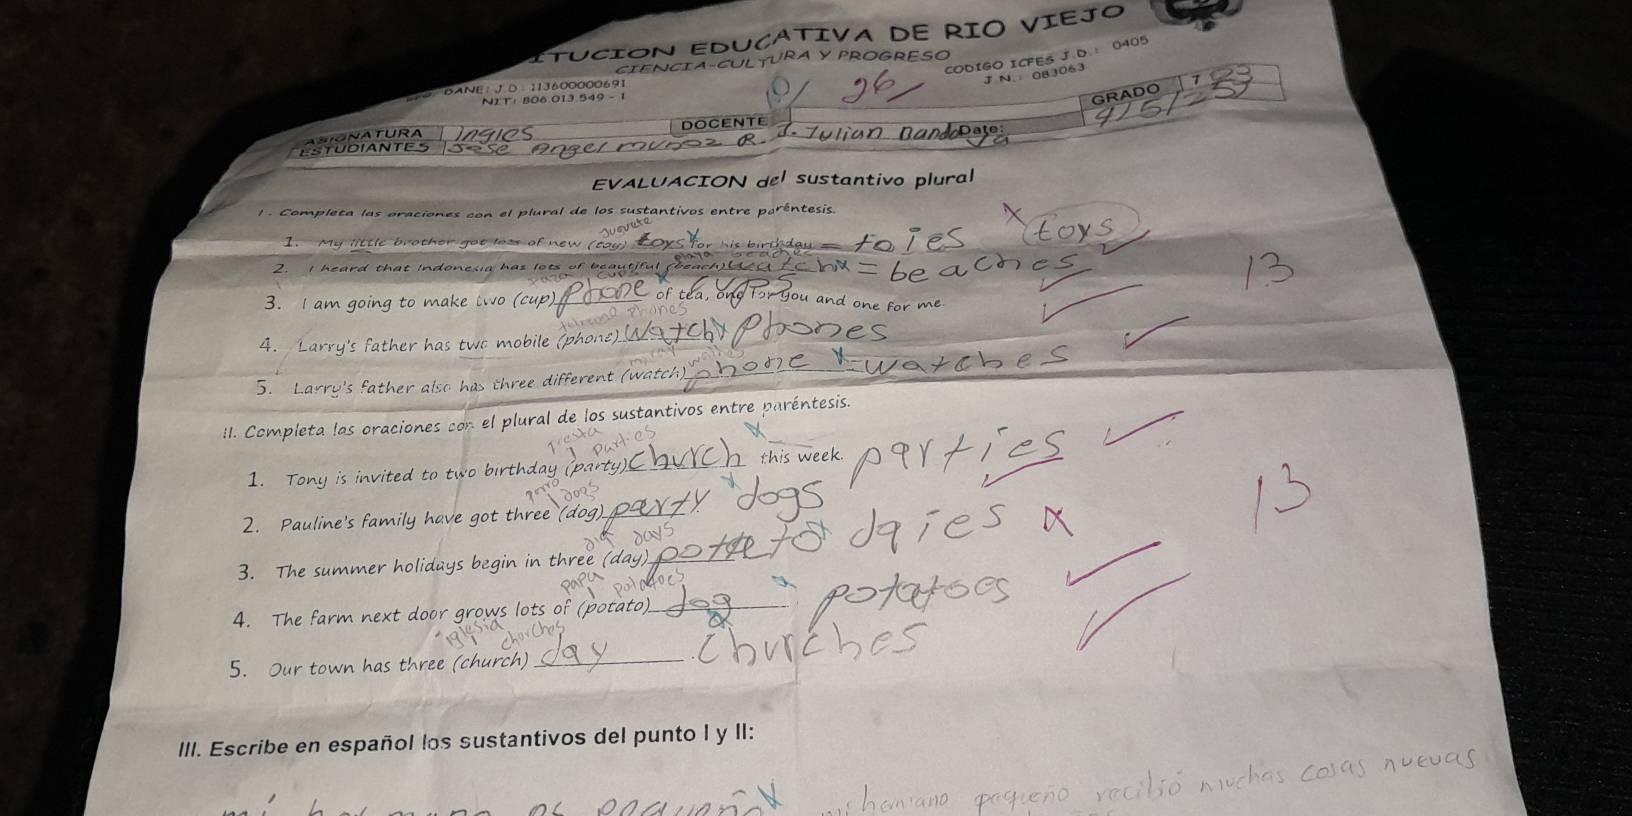 ITUCION EDUCATIVA DE RIO VIEJO
CIENCIA-CULTURA Y PROGRESO
DANE: J.D: 113600000691
NIT: 806.013.549 - 1
CODIGO ICFES J.D.: 0405
J.N.: 083063
26
ASIGNATURA Ingles DOCENTE GRADO 7
ESTUDIANTES Jose Angel munoz R. J. Julian Date:
EVALUACION del sustantivo plural
I. Completa las oraciones con el plural de los sustantivos entre paréntesis.
1. My little brother got lots of new (toy) toys for his birthday = toies toys
2. I heard that Indonesia has lots of beautiful (beach) watch = beaches
13
3. I am going to make two (cup) phone of tea, one for you and one for me.
4. Larry's father has two mobile (phone) watch phones
5. Larry's father also has three different (watch) phone = watches
II. Completa las oraciones con el plural de los sustantivos entre paréntesis.
parties
1. Tony is invited to two birthday (party) church this week. parties
perro dogs
2. Pauline's family have got three (dog) party dogs
13
dia days
3. The summer holidays begin in three (day) potato daies
papa potatoes
4. The farm next door grows lots of (potato) dog potatoes
iglesia churches
5. Our town has three (church) day churches
III. Escribe en español los sustantivos del punto I y II:
mi hermano pequeño recibió muchas cosas nuevas